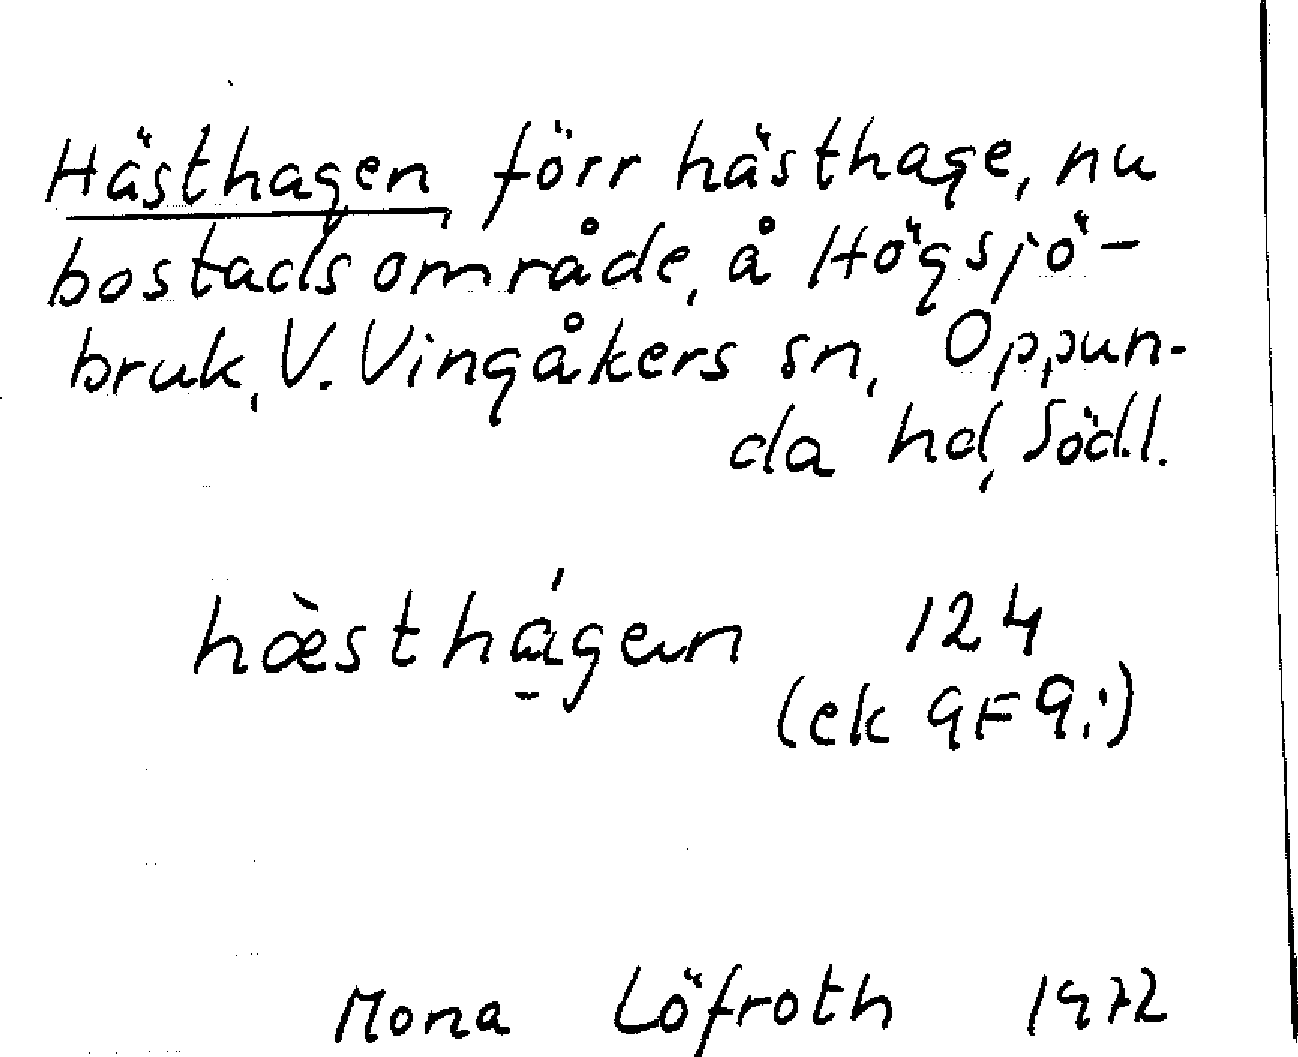 Hästhagen, förr hästhage, nu
bostadsområde, å Högsjö-
bruk, V. Vingåkers sn, Oppun-
da hd, Södl.
hæ̀sthá̱gen 124
(ek 9F9i)
Mona Löfroth 1972